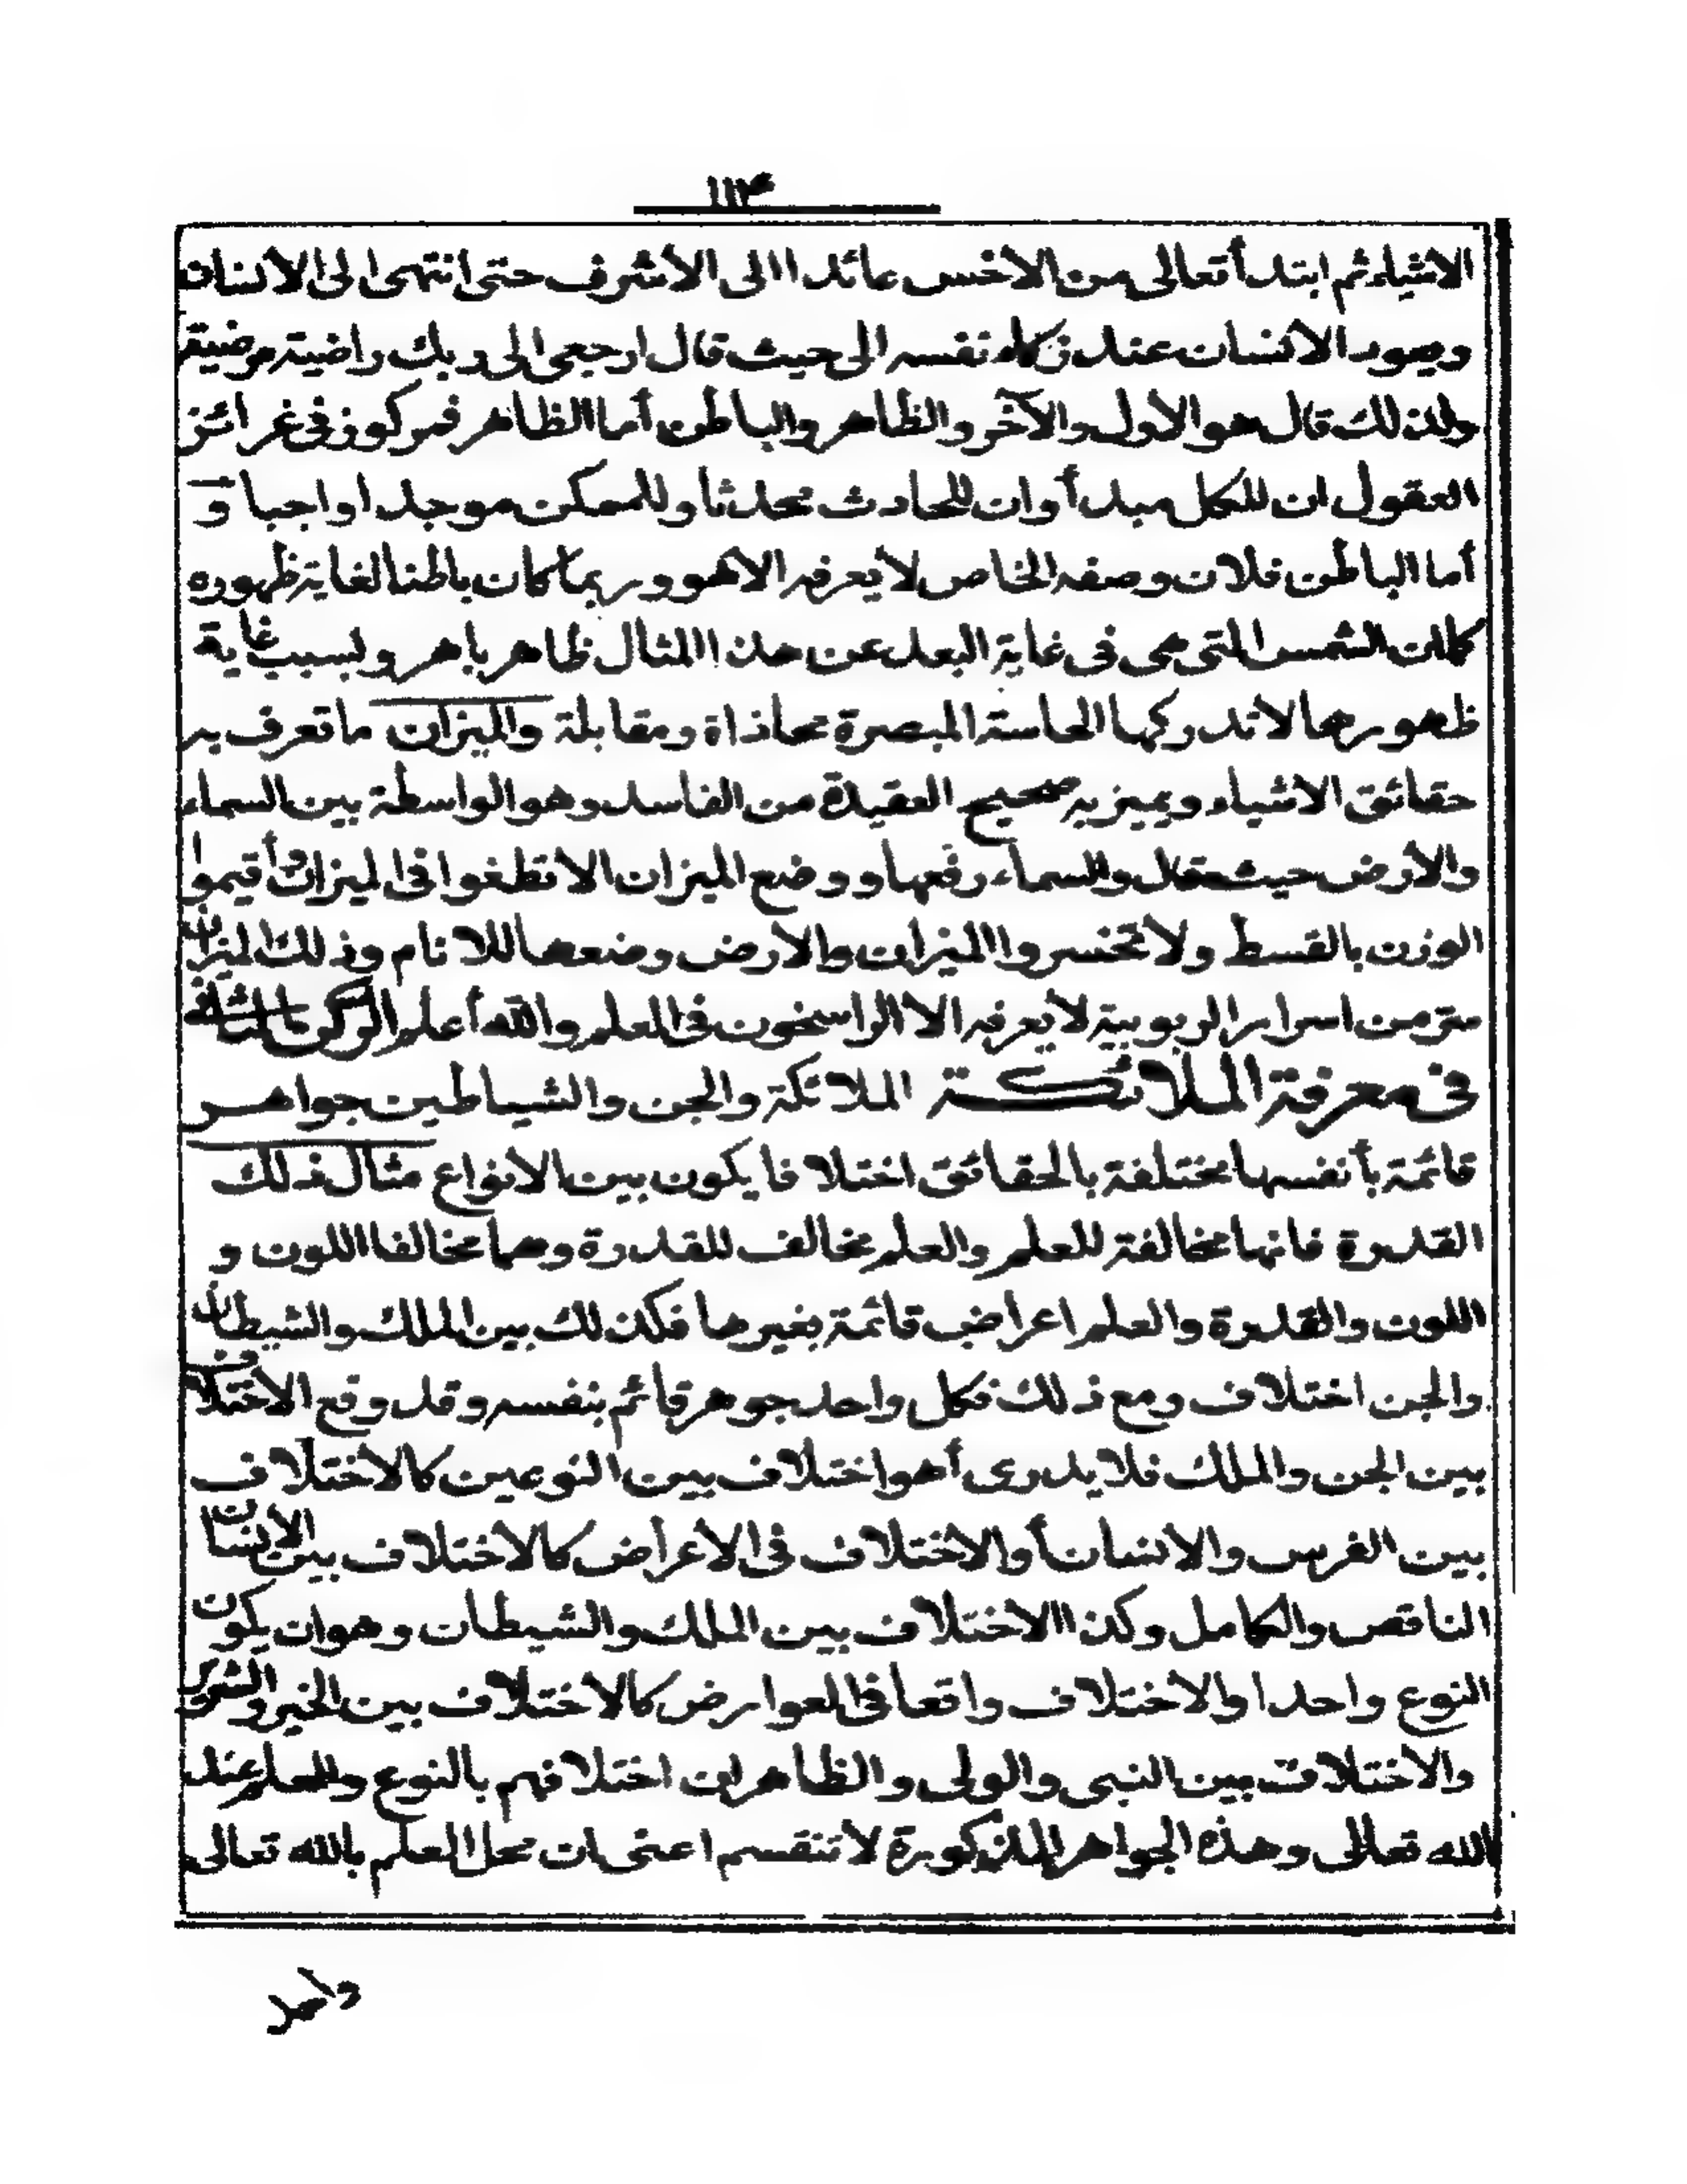 ١١٤
الاشياء ثم ابتدأ تعالى من الاخس عائدا الى الأشرف حتى انتهى الى الأنسان
ويعود الانسان عند زكاء نفسه الى حيث قال ارجعى الى ربك راضية مرضية
ولذلك قال هو الأول والآخر والظاهر والباطن أما الظاهر فمركوز فى غرائز
العقول ان للكل مبدأ وان للحادث محدثا وللممكن موجدا واجبا و
أما الباطن فلان وصفه الخاص لا يعرفه الا هو وربما كان باطنا لغاية ظهوره
كما ان الشمس التى هى فى غاية البعد عن هذا المثال ظاهر باهر ولسبب غاية
ظهورها لا تدركها الحاسة المبصرة محاذاة ومقابلة والميزان ما تعرف به
حقائق الاشياء ويميز به صحيح العقيدة من الفاسد وهو الواسطة بين السماء
والأرض حيث قال والسماء رفعها ووضع الميزان الا تطغوا فى الميزان وأقيموا
الوزن بالقسط ولا تخسروا الميزان والأرض وضعها للانام وذلك الميزان
سرّ من اسرار الربوبية لا يعرفه الا الراسخون فى العلم والله أعلم الركن الثانى
فى معرفة الملائكة الملائكة والجن والشياطين جواهر
قائمة بأنفسها مختلفة بالحقائق اختلافا يكون بين الانواع مثال ذلك
القدرة فانها مخالفة للعلم والعلم مخالف للقدرة وهما مخالفا اللون و
اللون والقدرة والعلم اعراض قائمة بغيرها فكذلك بين الملك والشيطان
والجن اختلاف ومع ذلك فكل واحد جوهر قائم بنفسه وقد وقع الاختلاف
بين الجن والملك فلا يدرى أهو اختلاف بين النوعين كالاختلاف
بين الفرس والانسان أو الاختلاف فى الأعراض كالاختلاف بين الأنسان
الناقص والكامل وكذا الاختلاف بين الملك والشيطان وهو ان يكون
النوع واحدا والاختلاف واقعا فى العوارض كالاختلاف بين الخير والشرير
والاختلاف بين النبى والولى والظاهر ان اختلافهم بالنوع والعلم عند
الله تعالى وهذه الجواهر المذكورة لا تنقسم اعنى ان محل العلم بالله تعالى
واحد